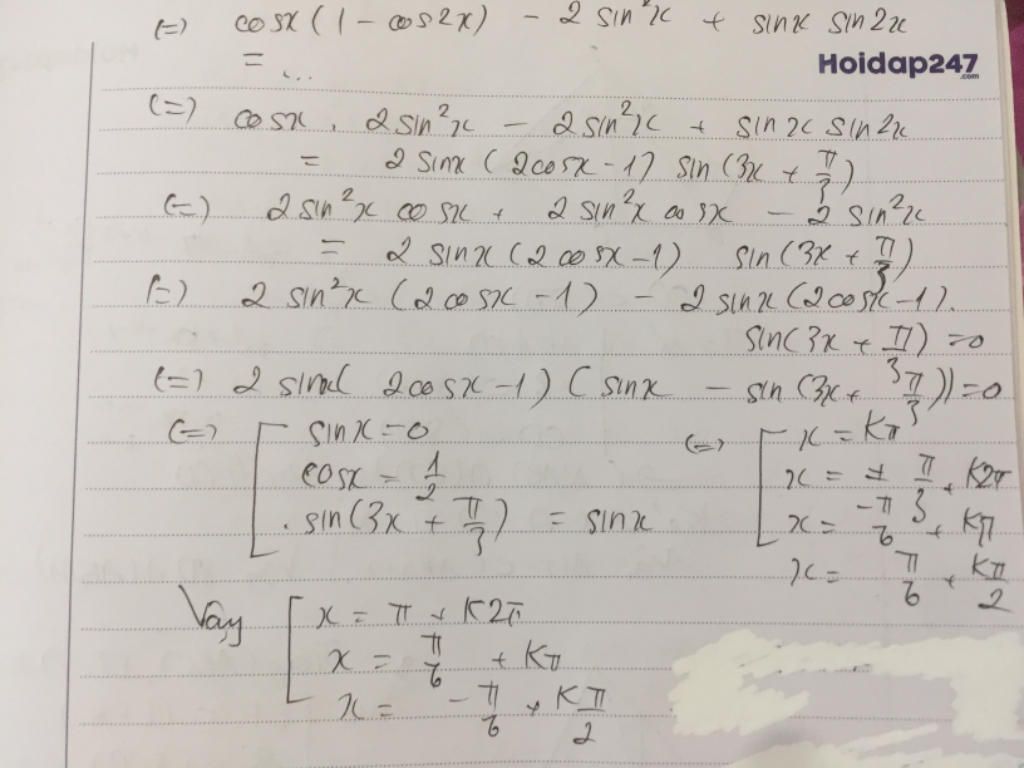 (=) cosx (1 - cos2x) - 2 sin²x + sinx sin2x
= ...
Hoidap247
.com
(=) cosx . 2sin²x - 2sin²x + sinx sin2x
= 2 sinx (2cosx-1) sin(3x + π/3)
(=) 2 sin²x cosx + 2 sin²x cosx - 2 sin²x
= 2 sinx (2cosx-1) sin(3x + π/3)
(=) 2 sin²x (2cosx-1) - 2 sinx (2cosx-1).
sin(3x + π/3) = 0
(=) 2 sinx( 2cosx-1) (sinx - sin(3x + π/3)) = 0
(=) [ sinx = 0 (=) [ x = Kπ
cosx = 1/2 x = ± π/3 + K2π
. sin(3x + π/3) = sinx x = -π/6 + Kπ
x = π/6 + Kπ/2
Vay [ x = π + K2π
x = π/6 + Kπ
x = -π/6 + Kπ/2